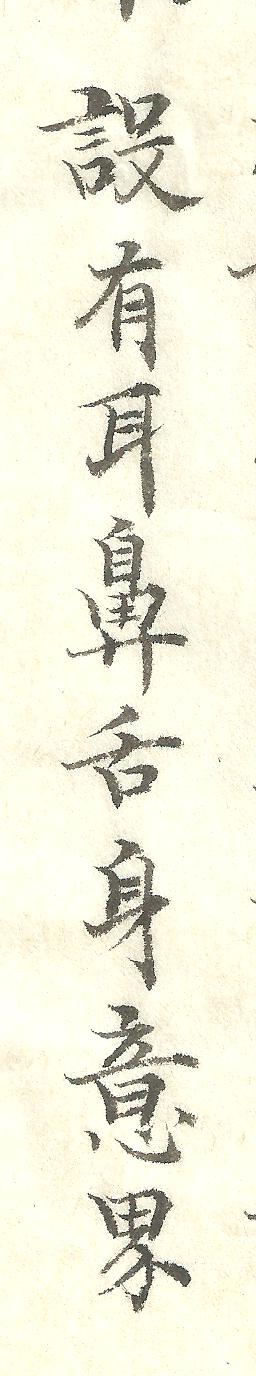 設有耳鼻舌身意界